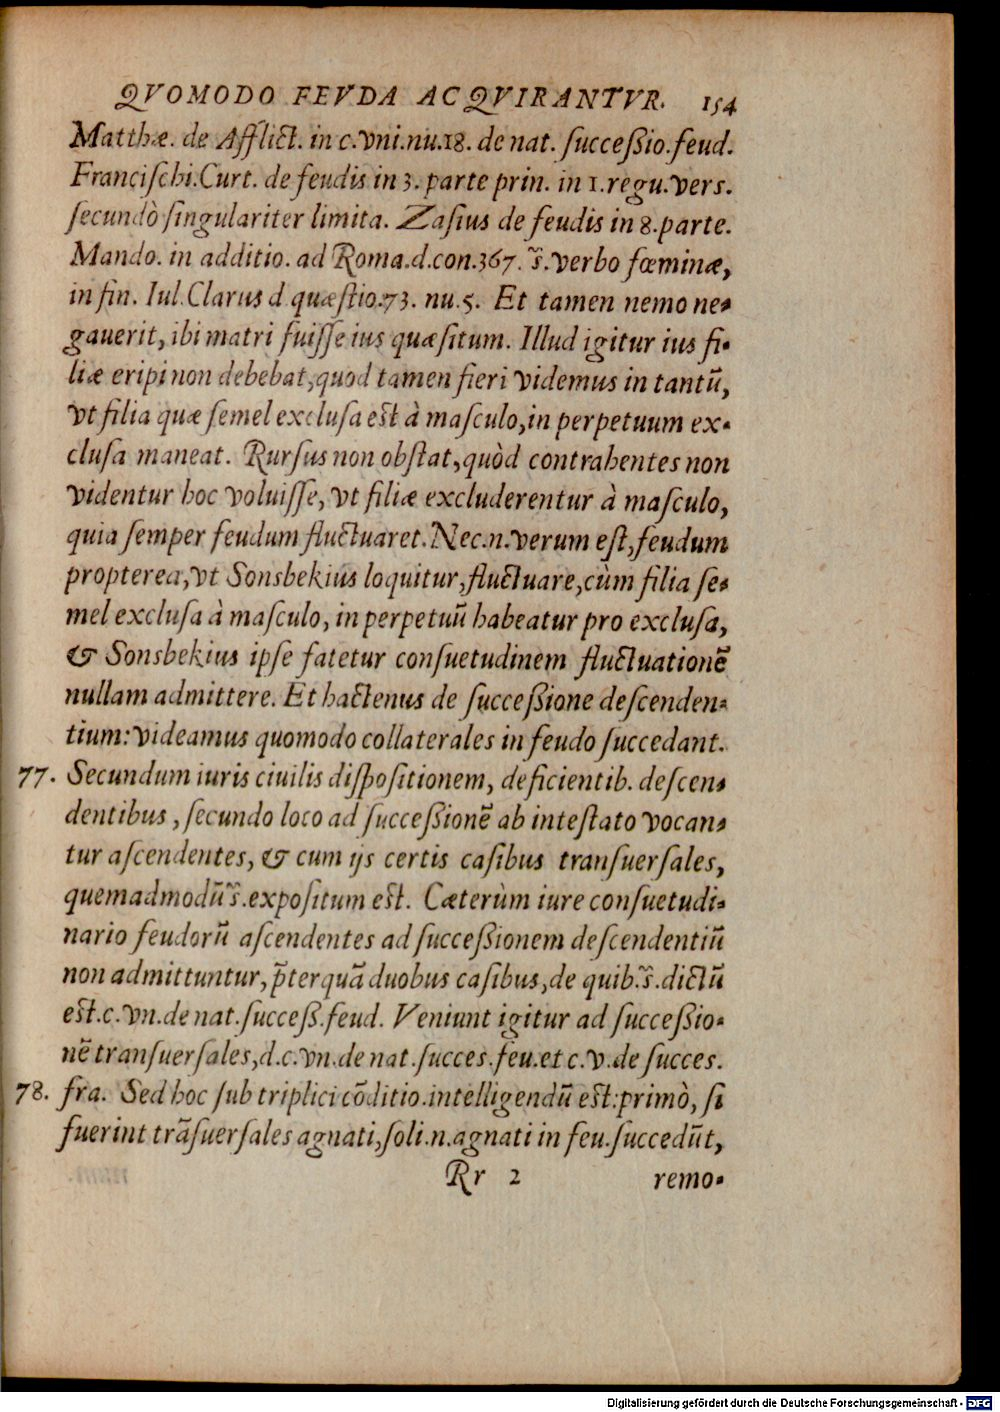 QVOMODO FEVDA ACQVIRANTVR. 154
Matthæ. de Afflict. in c. vni.nu.18. de nat. ſucceßio.feud.
Franciſchi.Curt. de feudis in 3. parte prin. in 1.regu.vers.
ſecundò ſingulariter limita. Zaſius de feudis in 8.parte.
Mando. in additio. ad Roma.d.con.367. s̃. verbo fœminæ,
in fin. Iul.Clarus d quæſtio.73. nu.5. Et tamen nemo ne-
gauerit, ibi matri fuiſſe ius quæſitum. Illud igitur ius fi-
liæ eripi non debebat,quod tamen fieri videmus in tantũ,
vt filia quæ ſemel excluſa eſt à maſculo,in perpetuum ex-
cluſa maneat. Rurſus non obſtat,quòd contrahentes non
videntur hoc voluiſſe, vt filiæ excluderentur à maſculo,
quia ſemper feudum fluctuaret. Nec.n.verum eſt,feudum
propterea,vt Sonsbekius loquitur,fluctuare,cùm filia ſe-
mel excluſa à maſculo, in perpetuũ habeatur pro excluſa,
& Sonsbekius ipſe fatetur conſuetudinem fluctuationẽ
nullam admittere. Et hactenus de ſucceßione deſcenden-
tium: videamus quomodo collaterales in feudo ſuccedant.
77. Secundum iuris ciuilis diſpoſitionem, deficientib. deſcen-
dentibus, ſecundo loco ad ſucceßionẽ ab inteſtato vocan-
tur aſcendentes, & cum ijs certis caſibus tranſuerſales,
quemadmodũ s̃.expoſitum eſt. Cæterùm iure conſuetudi-
nario feudorũ aſcendentes ad ſucceßionem deſcendentiũ
non admittuntur, p̃terquã duobus caſibus,de quib. s̃.dictũ
eſt.c.vn.de nat.ſucceß.feud. Veniunt igitur ad ſucceßio-
nẽ tranſuerſales,d.c.vn.de nat.ſucces.feu.et c.v.de ſucces.
78. fra. Sed hoc ſub triplici cõditio.intelligendũ eſt:primò, ſi
fuerint trãſuerſales agnati,ſoli.n.agnati in feu.ſuccedũt,
Rr 2 remo-
Digitalisierung gefördert durch die Deutsche Forschungsgemeinschaft - DFG